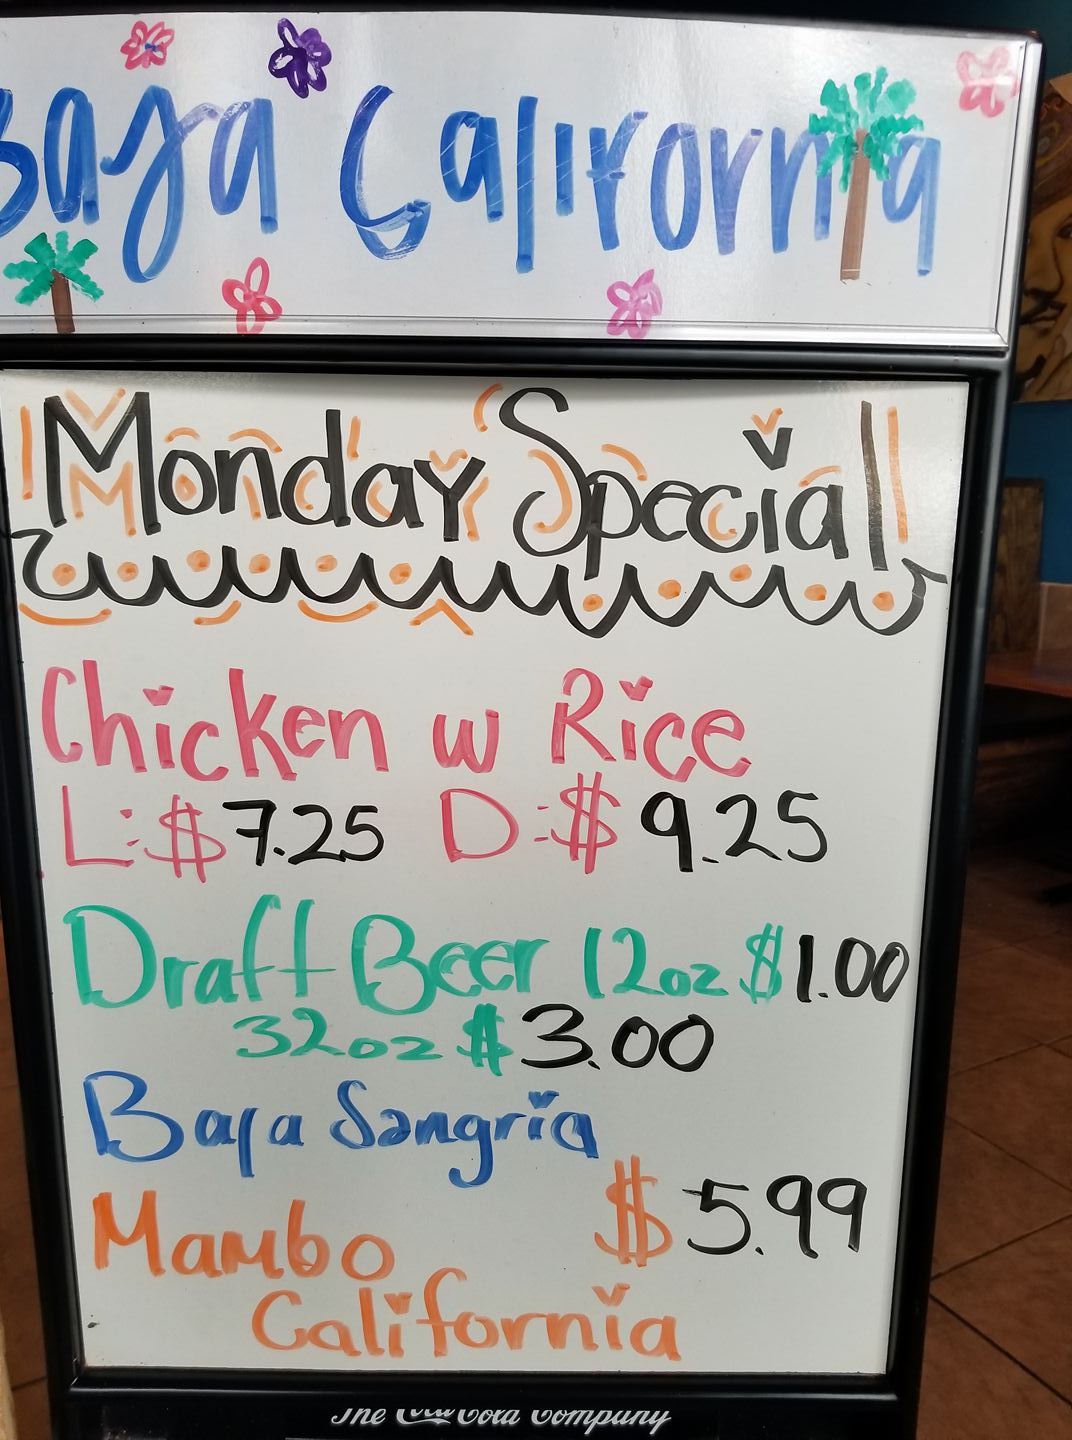 Baja California
Monday Special
Chicken w Rice
L: $7.25 D: $9.25
Draft Beer 12oz $1.00
32oz $3.00
Baja Sangria
Mambo $5.99
California
The Coca-Cola Company